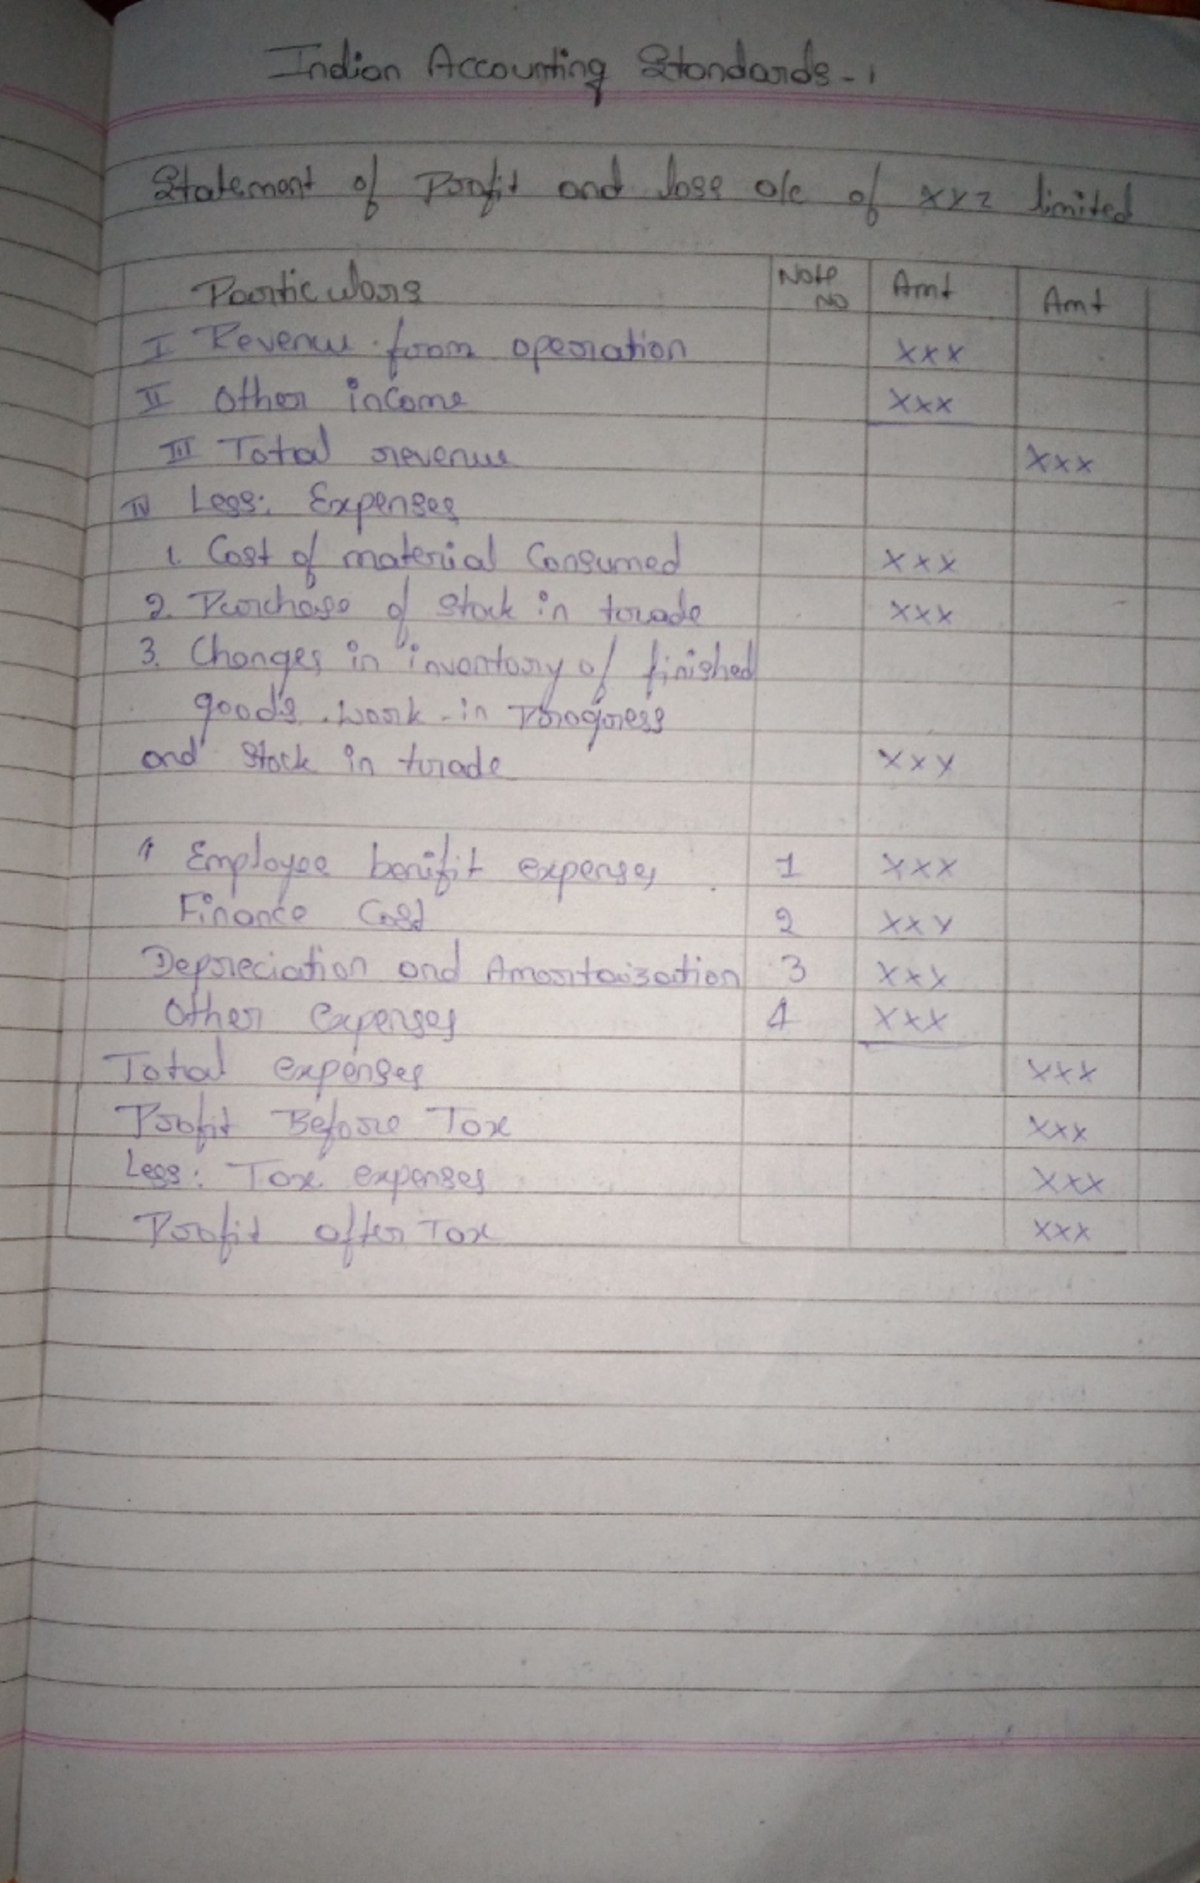 Indian Accounting Standards - 1
Statement of Profit and loss a/c of xyz limited
Particulars Note No Amt Amt
I Revenue from operation xxx
II Other income xxx
III Total revenue xxx
IV Less: Expenses
1. Cost of material Consumed xxx
2. Purchase of stock in trade xxx
3. Changes in inventory of finished
goods. work-in Progress
and stock in trade xxy
4 Employee benifit expenses 1 xxx
Finance Cost 2 xxy
Depreciation and Amortaization 3 xxy
Other expenses 4 xxx
Total expenses xxx
Profit Before Tax xxx
Less: Tax expenses xxx
Profit after Tax xxx